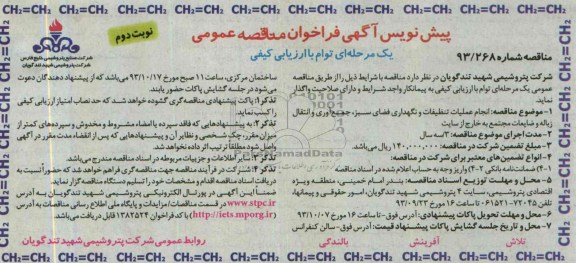 پیش نویس آگهی فراخوان مناقصه عمومی
نوبت دوم
یک مرحله‌ای توام با ارزیابی کیفی
مناقصه شماره ۹۳/۲۶۸
شرکت صنایع پتروشیمی خلیج فارس
شرکت پتروشیمی شهید تندگویان
شرکت پتروشیمی شهید تندگویان در نظر دارد مناقصه با شرایط ذیل را از طریق مناقصه
عمومی یک مرحله‌ای توام با ارزیابی کیفی به پیمانکار واجد شرایط و دارای صلاحیت واگذار
نماید.
۱-موضوع مناقصه: انجام عملیات تنظیفات و نگهداری فضای سبز، جمع آوری و انتقال
زباله و ضایعات مجتمع به خارج از سایت
۲-مدت اجرای موضوع مناقصه: ۳/سه سال
۳-مبلغ تضمین شرکت در مناقصه: ۱۴۰،۰۰۰،۰۰۰ ریال می‌باشد.
۴-انواع تضمین‌های معتبر برای شرکت در مناقصه:
۴-۱) ضمانت‌نامه بانکی ۴-۲) واریز وجه به حساب اعلام شده در اسناد مناقصه
۵-محل و مهلت توزیع اسناد مناقصه: بندر امام خمینی، منطقه ویژه
اقتصادی پتروشیمی، سایت ۴ پتروشیمی شهید تندگویان، امور حقوقی و پیمانها،
تلفن ۷۲۰۴۵-۰۶۱۵۲۱ تا ساعت ۱۶ مورخ ۹۳/۰۹/۲۳
۶-محل و مهلت تحویل پاکات پیشنهادی: آدرس فوق- تا ساعت ۱۶ مورخ ۹۳/۱۰/۰۷
۷-محل و تاریخ جلسه گشایش پاکات پیشنهادها قیمت: آدرس فوق- سالن کنفرانس
ساختمان مرکزی، ساعت ۱۱ صبح مورخ ۹۳/۱۰/۱۷ می‌باشد که از پیشنهاد دهندگان دعوت
می‌شود در جلسه گشایش پاکات حضور یابند.
تذکر۱: پاکت پیشنهادی مناقصه گری گشوده خواهد شد که حد نصاب امتیاز ارزیابی کیفی
را کسب نماید.
تذکر۲: به پیشنهادهایی که فاقد سپرده یا امضاء، مشروط و مخدوش و سپرده‌های کمتر از
میزان مقرر، چک شخصی و نظایر آن و پیشنهادهایی که پس از انقضاء مدت مقرر در آگهی
واصل شود مطلقاً ترتیب اثر داده نخواهد شد.
تذکر۳: سایر اطلاعات و جزییات مربوطه در اسناد مناقصه مندرج می‌باشد.
تذکر۴: شرکت در فرآیند مناقصه جهت مناقصه‌گری فراهم خواهد شد که حضوراً نسبت به
دریافت اسناد مناقصه اقدام و مشخصات خود را تسلیم دستگاه مناقصه گزار نماید.
ضمناً این آگهی در پورتال الکترونیکی پتروشیمی شهید تندگویان به آدرس
www.stpc.ir در قسمت مناقصات/مزایدات و پایگاه ملی اطلاع رسانی مناقصات به آدرس
(http://iets.mporg.ir) با کد فراخوان ۱۳۸۲۵۲۴ قابل دریافت می‌باشد.
روابط عمومی شرکت پتروشیمی شهید تندگویان
تلاش آفرینش بالندگی